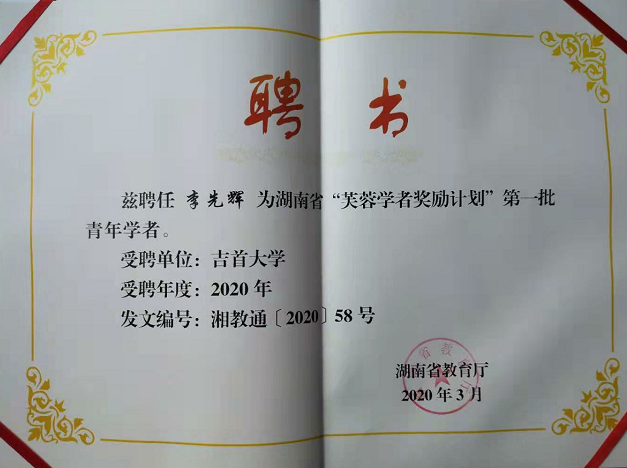 聘书
兹聘任 李先辉 为湖南省“芙蓉学者奖励计划”第一批
青年学者。
受聘单位：吉首大学
受聘年度：2020 年
发文编号：湘教通〔2020〕58 号
湖南省教育厅
2020 年 3 月